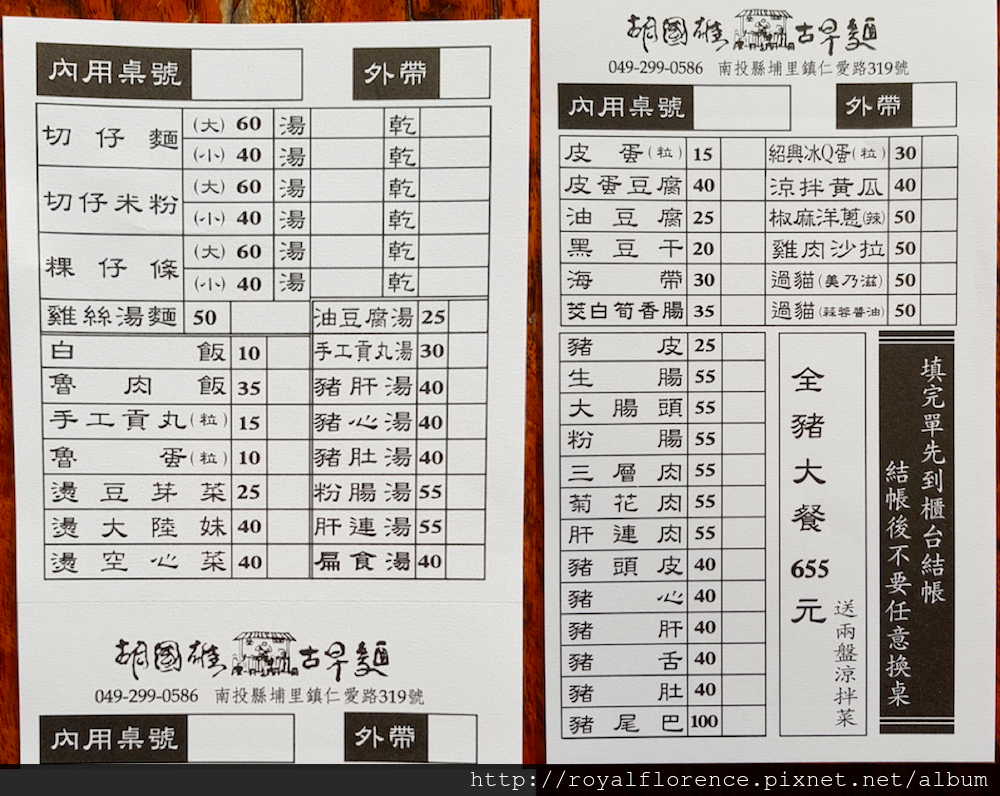 內用桌號 外帶
切仔麵 (大) 60 湯 乾
(小) 40 湯 乾
切仔米粉 (大) 60 湯 乾
(小) 40 湯 乾
粿仔條 (大) 60 湯 乾
(小) 40 湯 乾
雞絲湯麵 50 油豆腐湯 25
白飯 10 手工貢丸湯 30
魯肉飯 35 豬肝湯 40
手工貢丸(粒) 15 豬心湯 40
魯蛋(粒) 10 豬肚湯 40
燙豆芽菜 25 粉腸湯 55
燙大陸妹 40 肝連湯 55
燙空心菜 40 扁食湯 40
胡國雄古早麵
049-299-0586 南投縣埔里鎮仁愛路319號
內用桌號 外帶
胡國雄古早麵
049-299-0586 南投縣埔里鎮仁愛路319號
內用桌號 外帶
皮蛋(粒) 15 紹興冰Q蛋(粒) 30
皮蛋豆腐 40 涼拌黃瓜 40
油豆腐 25 椒麻洋蔥(辣) 50
黑豆干 20 雞肉沙拉 50
海帶 30 過貓(美乃滋) 50
茭白筍香腸 35 過貓(蒜蓉醬油) 50
豬皮 25
生腸 55
大腸頭 55
粉腸 55
三層肉 55
菊花肉 55
肝連肉 55
豬頭皮 40
豬心 40
豬肝 40
豬舌 40
豬肚 40
豬尾巴 100
全豬大餐 655 元
送兩盤涼拌菜
填完單先到櫃台結帳
結帳後不要任意換桌
http://royalflorence.pixnet.net/album